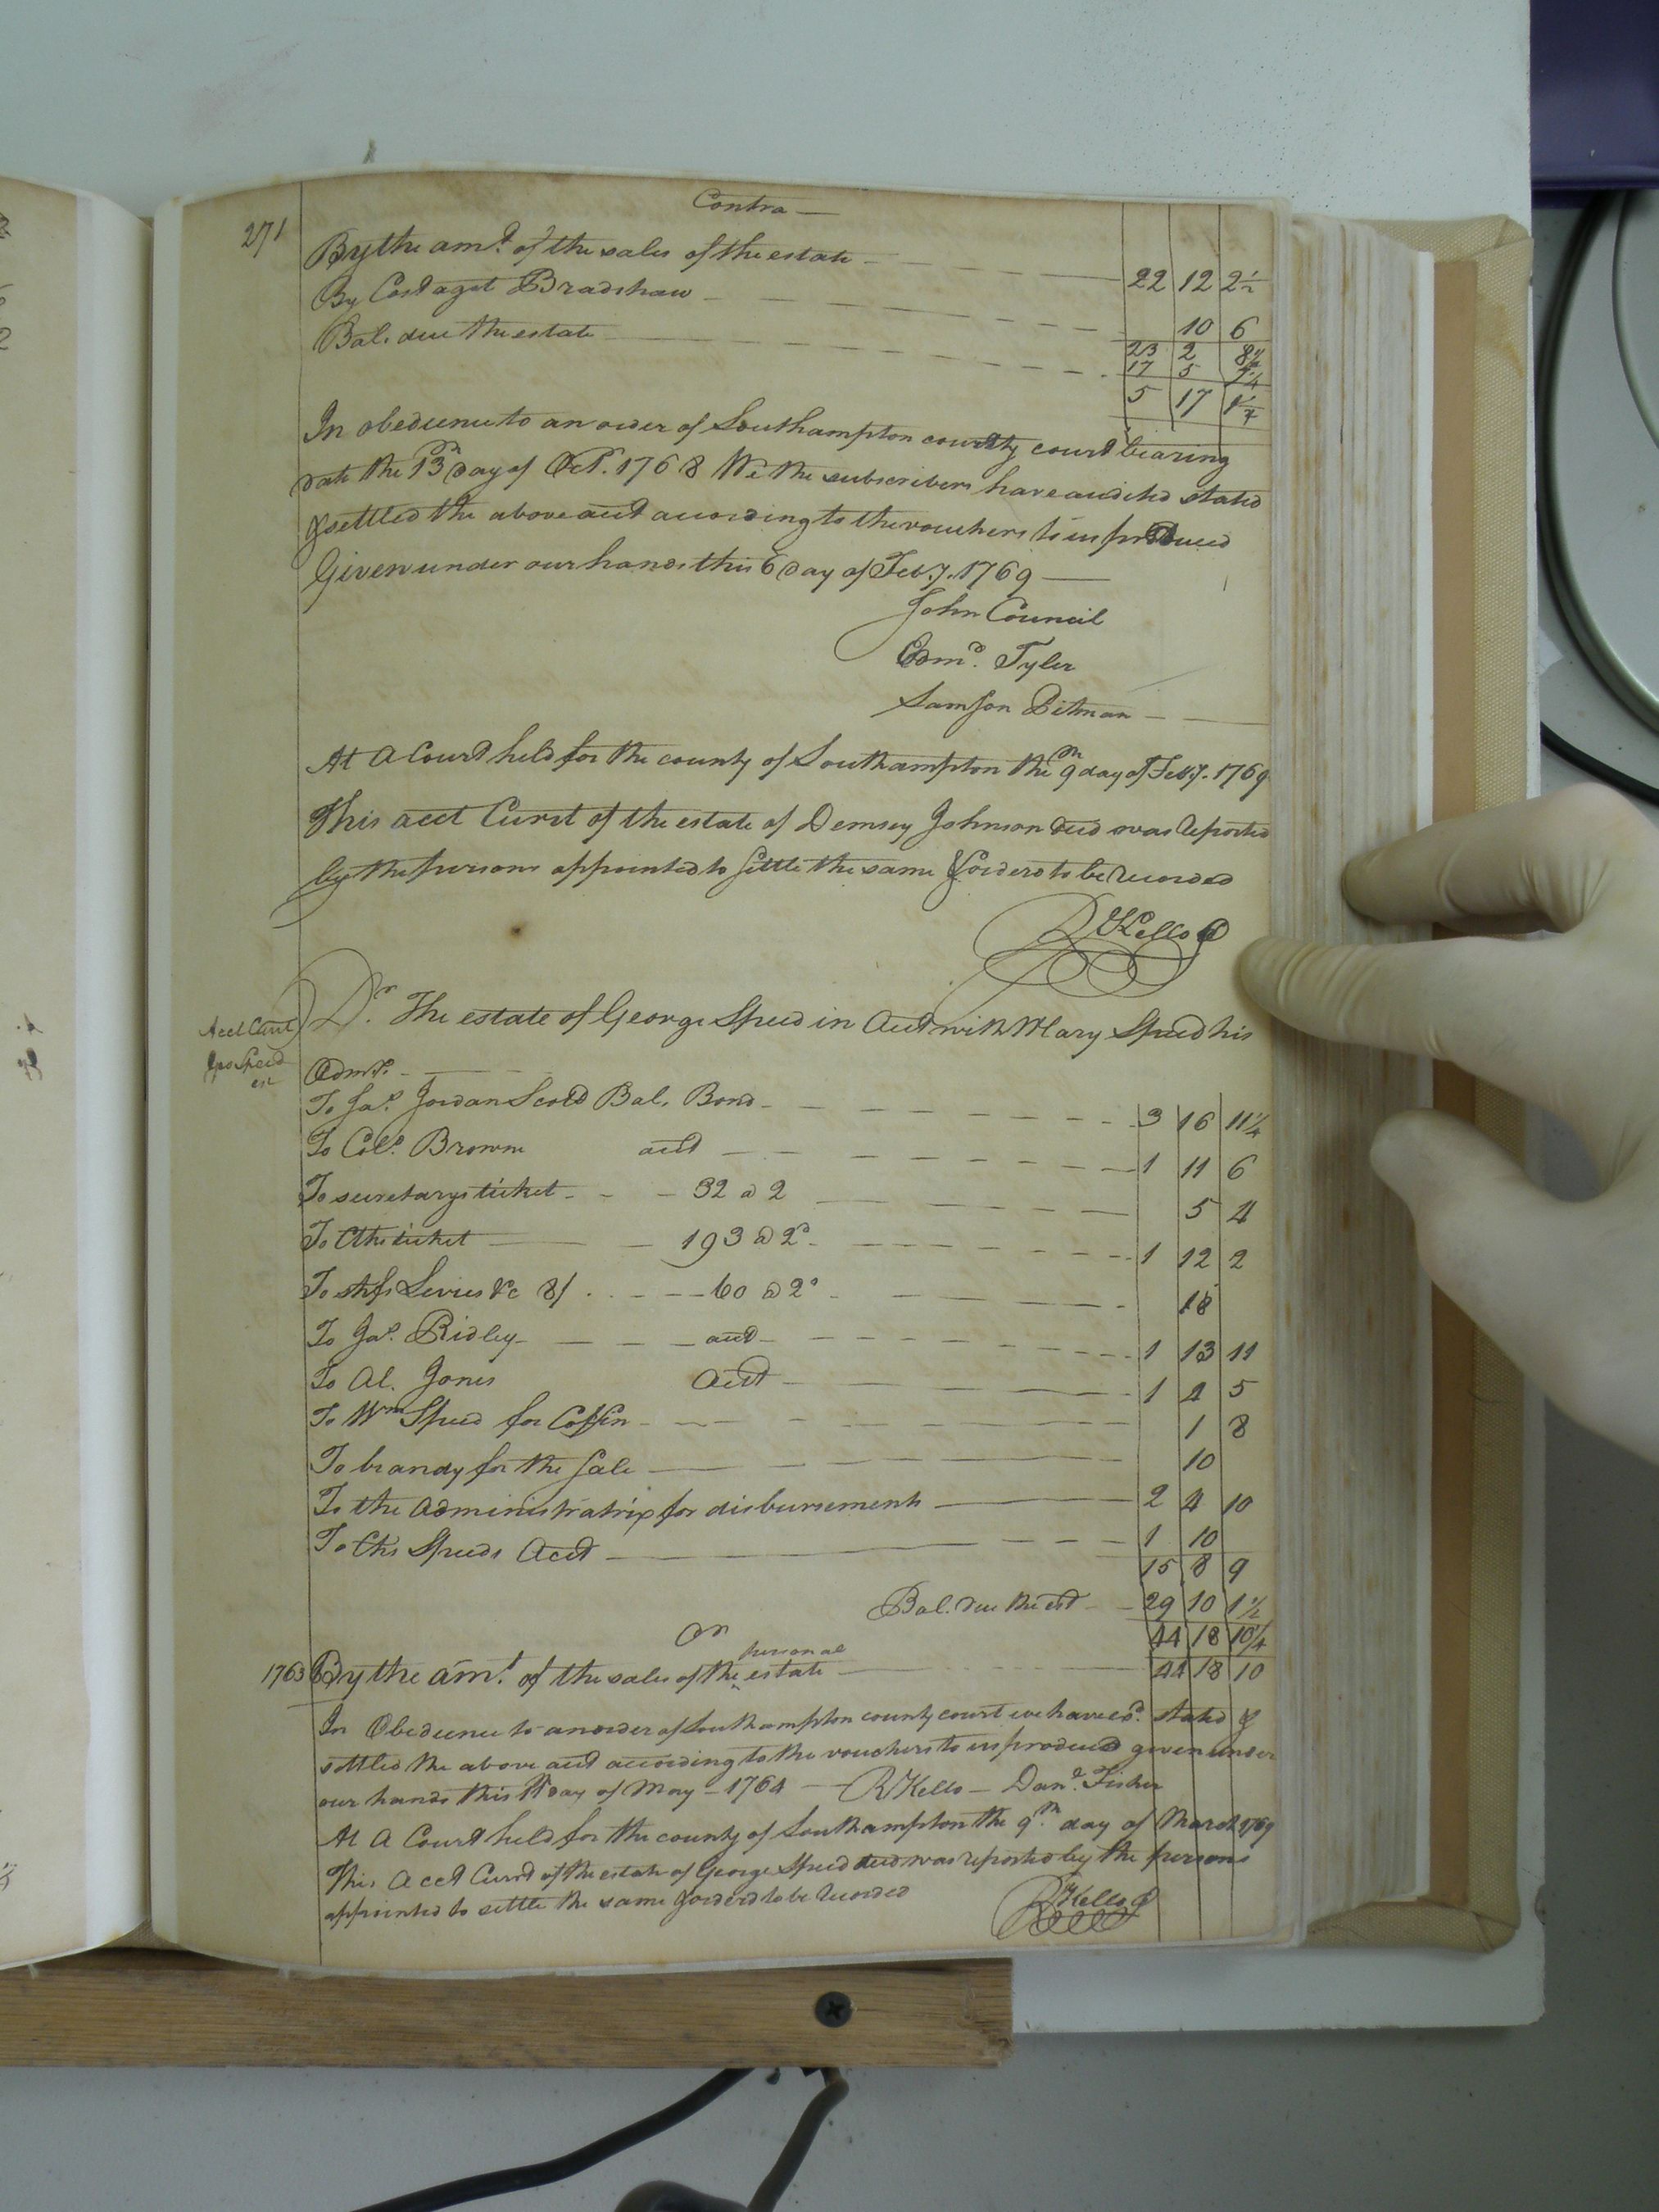 Contra —
271
By the amt. of the sales of the estate — 22 12 2½
By Cost agst Bradshaw — 10 6
23 2 8½
Bal. due the estate — 17 5 7¼
5 17 1¼
In obedience to an order of Southampton county court bearing
date the 13th day of Oct. 1768 We the subscribers have audited stated
& settled the above acct according to the vouchers to us produced
Given under our hands this 6 day of Feby. 1769 —
John Council
Edmd. Tyler
Samson Pitman —
At a Court held for the county of Southampton the 9th day of Feby. 1769
This acct Curst of the estate of Demsey Johnson decd was reported
by the persons appointed to settle the same & orderd to be recorded
RKello C
Acct Curst
Geo Speed
est
Dr. The estate of George Speed in Acct with Mary Speed his
Admr. —
To Jas. Jordan Scotts Bal. Bond — 3 16 11¼
To Colo. Browne acct — 1 11 6
To secretarys ticket — 32 a 2 — 5 4
To Clks ticket — 193 a 2d — 1 12 2
To shfs Levies &c 8/ — 60 a 2d — 18
To Jas. Ridley — acct — 1 13 11
To Al. Jones Acct — 1 4 5
To Wm Speed for Coffin — 1 8
To brandy for the sale — 10
To the Administratrix for disbursements — 2 4 10
To Chs Speeds Acct — 1 10
15 8 9
Bal. due the est — 29 10 1½
44 18 10¼
Cr
personal
1763 By the amt. of the sales of the ‸ estate — 44 18 10
In Obedience to an order of Southampton county court we have exd. stated &
settled the above acct according to the vouchers to us produced given under
our hands this day of May — 1764 — RKello — Danl. Fisher
At a Court held for the county of Southampton the 9th. day of March 1769
This Acct Curst of the estate of George Speed decd was reported by the persons
appointed to settle the same & orderd to be recorded
RKello C